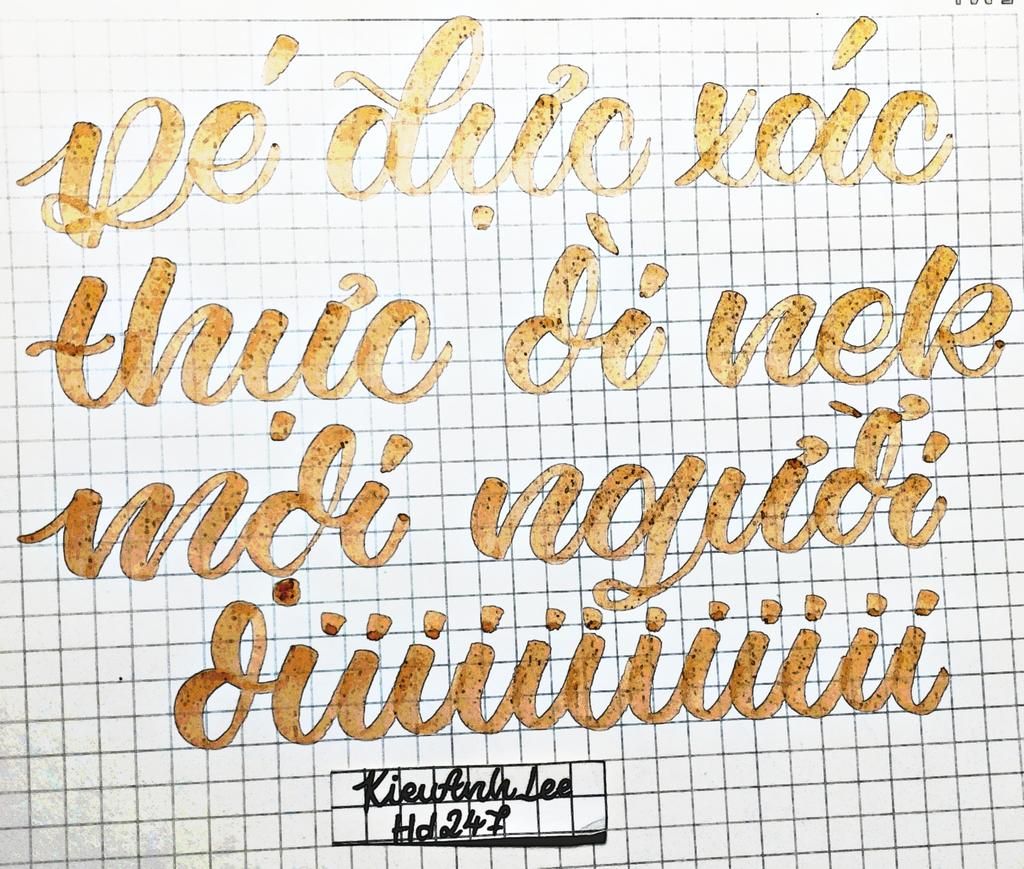 Pé đực xác
thực òi nek
mọi người
oiiiiiiiiiiii
KieuAnh_Lee
Hd247